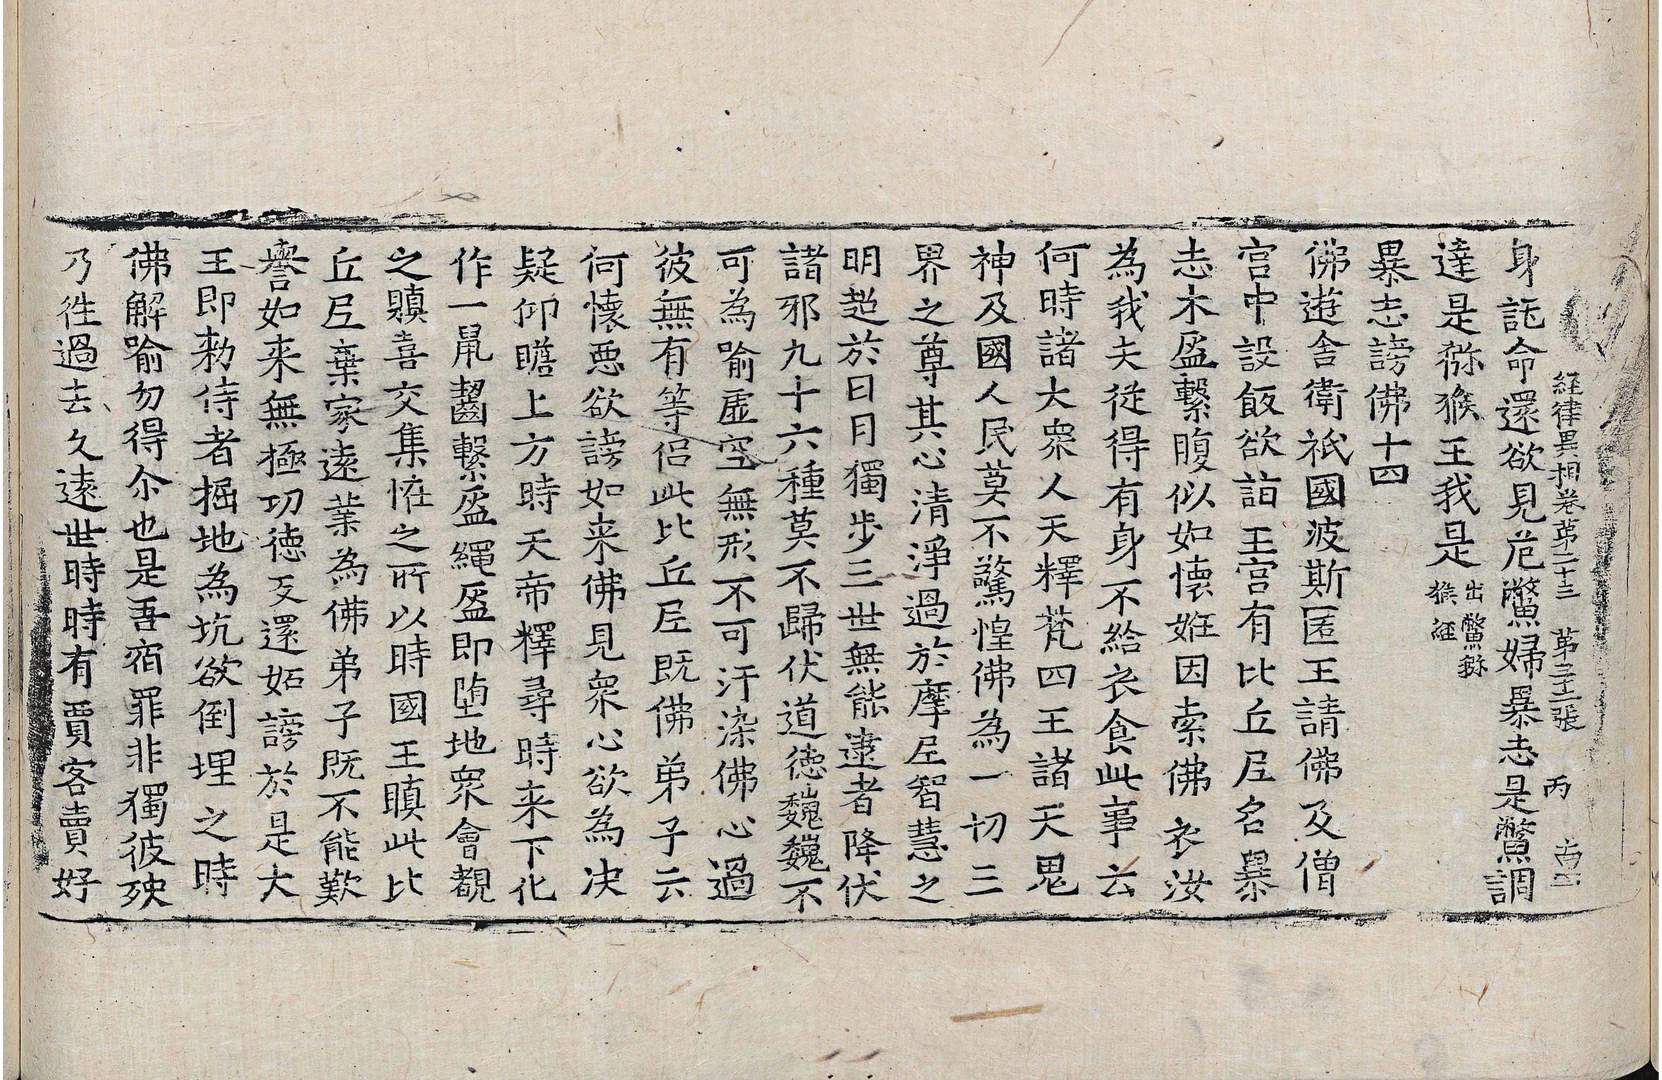 經律異相卷第二十三　第三十二張　丙
身託命還欲見危鼈婦暴志是鼈調
達是獼猴王我是出鼈獼猴經
暴志謗佛十四
佛遊舍衛祇國波斯匿王請佛及僧
宮中設飯欲詣王宮有比丘尼名暴
志木盂繫腹似如懷妊因索佛衣汝
為我夫從得有身不給衣食此事云
何時諸大衆人天釋梵四王諸天鬼
神及國人民莫不驚惶佛為一切三
界之尊其心清淨過於摩尼智慧之
明超於日月獨步三世無能逮者降伏
諸邪九十六種莫不歸伏道德巍巍不
可為喻虛空無形不可汙染佛心過
彼無有等侶此比丘尼既佛弟子云
何懷惡欲謗如来佛見衆心欲為決
疑仰瞻上方時天帝釋尋時来下化
作一鼠齧繫盂繩盂即墮地衆會覩
之瞋喜交集恠之所以時國王瞋此比
丘尼棄家遠業為佛弟子既不能歎
譽如来無極功德反還妬謗於是大
王即勑侍者掘地為坑欲倒埋之時
佛解喻勿得尒也是吾宿罪非獨彼殃
乃徃過去久遠世時時有賈客賣好